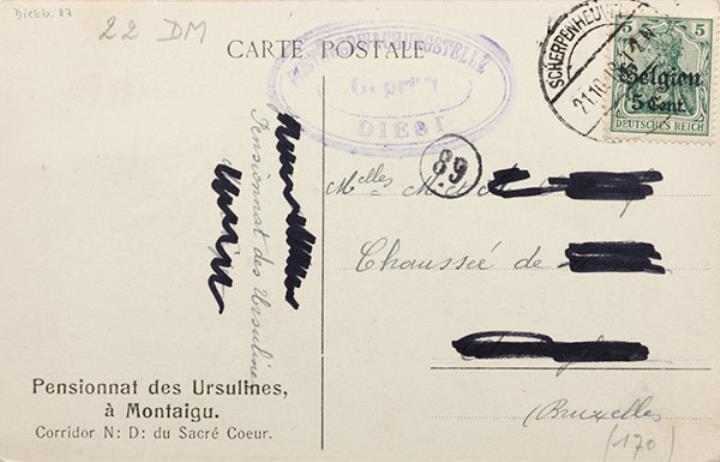 Dickb. 87
22 DM
CARTE POSTALE
DIEST
SCHERPENHEUVEL
21.10.
5 5
Belgien
5 Cent.
DEUTSCHES REICH
89
Melles
Chaussée de
Bruxelles
(170)
Pensionnat des Ursulines
Pensionnat des Ursulines,
à Montaigu.
Corridor N: D: du Sacré Coeur.